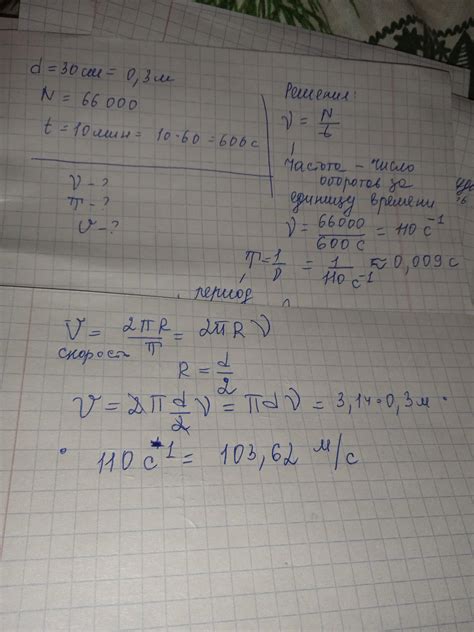 d = 30см = 0,3м
N = 66 000
t = 10мин = 10·60 = 600с
ν - ?
T - ?
v - ?
Решения:
ν = N/t
Частота - число
оборотов за
единицу времени
ν = 66000/600с = 110 с⁻¹
T = 1/ν = 1/110 с⁻¹ ≈ 0,009с
период
v = 2πR/T = 2πRν
скорость
R = d/2
v = 2π d/2 ν = πdν = 3,14·0,3м ·
· 110 с⁻¹ = 103,62 м/с